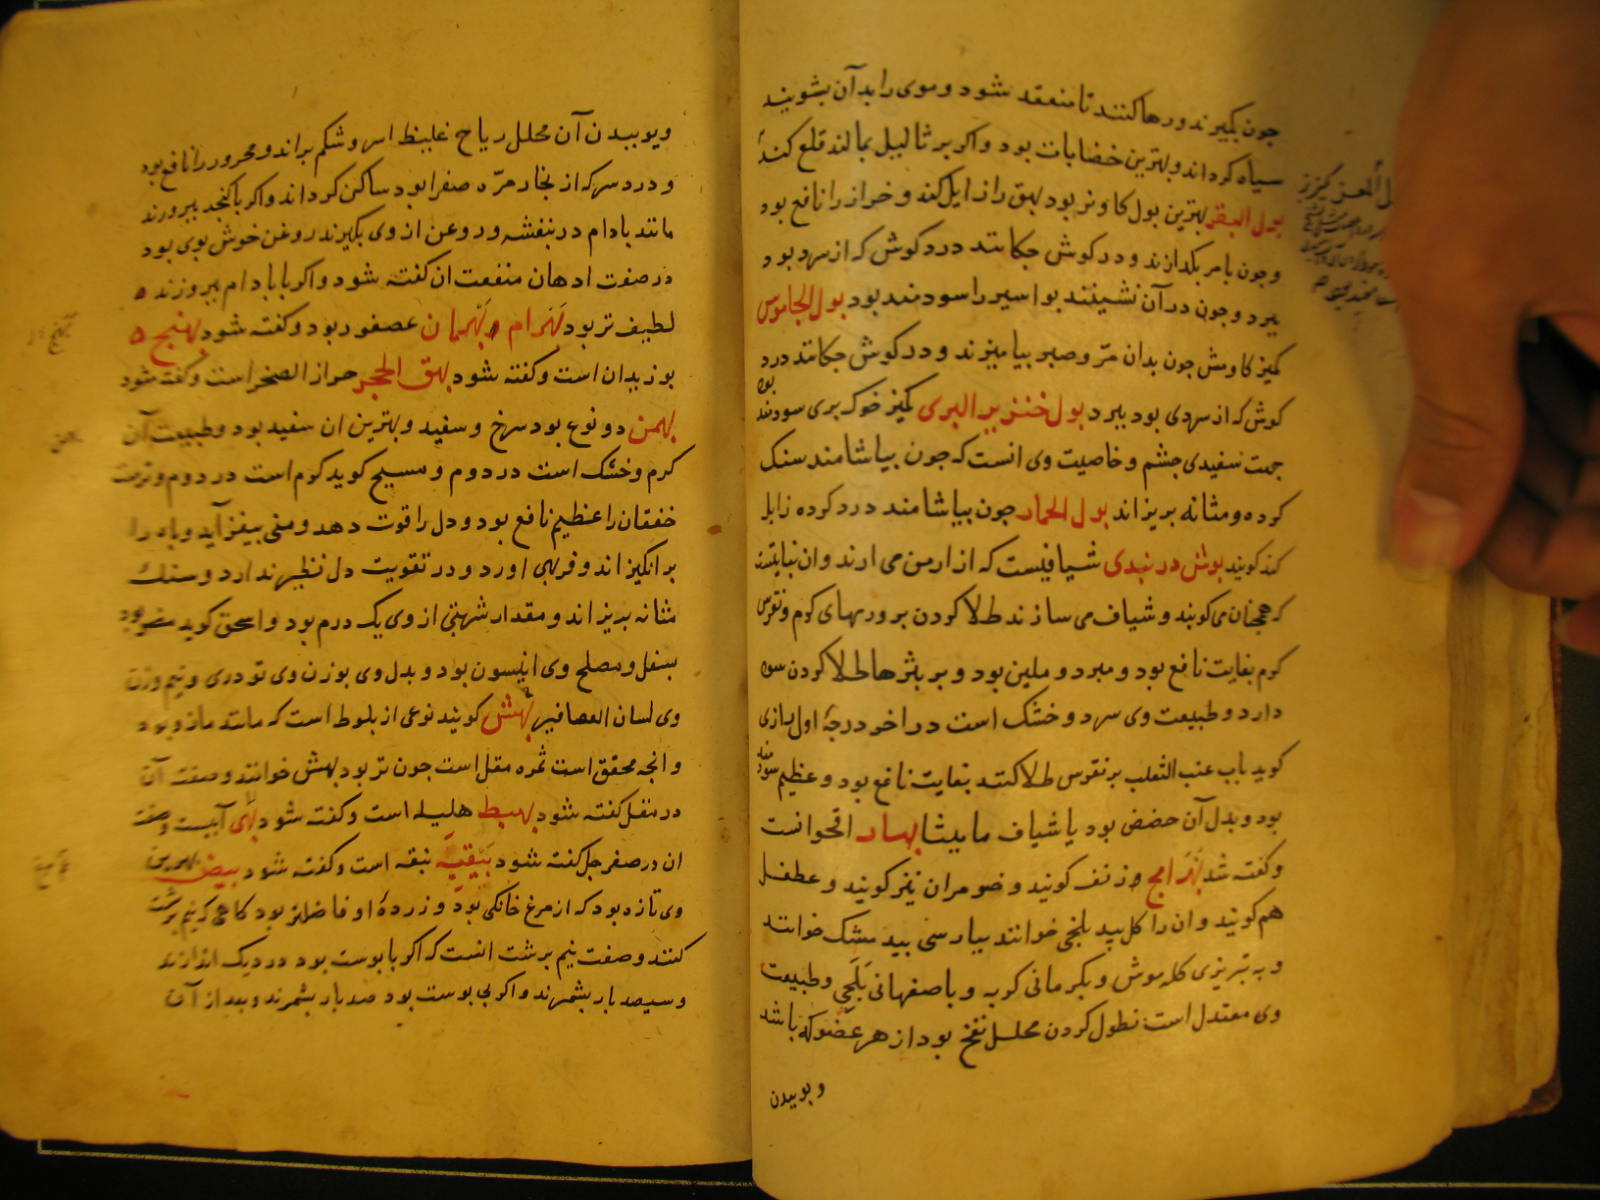 جون بکیرند ورها کنند تا منعقد شود و موی را بدآن بشویند
سیاه کرداند و بهترین خضابات بود و اکر بر ثالیل بمالند قلع کند
بول البقر بهترین بول کاو نر بود بهق را زایل کند و خراز را نافع بود
و جون با مر بکدازند و در کوش جکانند درد کوش که از سرد بود
ببرد و جون در آن نشینند بواسیر را سودمند بود بول الجاموس
کمیز کاومش جون بدان مرّ و صبر بیامیزند و در کوش جکانند درد
کوش که از سردی بود ببرد بول خنزیر البری کمیز خوک بری سودمند بود
جهت سفیدی جشم و خاصیت وی انست که جون بیاشامند سنک
کرده و مثانه بریزاند بول الحمار جون بیاشامند درد کرده زایل
کند کویند بوش دربندی شیافیست که از ارمن می ارند و ان نباتیست
که همجنان می کوبند و شیاف می سازند طلا کردن بر ورمهای کرم و نقرس
کرم بغایت نافع بود و مبرد و ملین بود و بر بثرها طلا کردن سود
دارد و طبیعت وی سرد و خشک است در اخر درجهٔ اول رازی
کوید باب عنب الثعلب بر نقرس طلا کنند بغایت نافع بود و عظیم سودمند
بود و بدل آن حضض بود یا شیاف مامیثا بهار اقحوانست
و کفته شد بهرامج و زنف کویند و ضومران نیز کویند و عطفل
هم کویند و ان را کل بید بلخی خوانند ببارسی بید مشک خوانند
و به تبریزی کله موش و بکرمانی کربه و باصفهانی بلخی و طبیعت
وی معتدل است نطول کردن محلل نفخ بود از هر عضو که باشد
و بوییدن
و بوییدن آن محلل ریاح غلیظ است و شکم براند و محرور را نافع بود
و درد سر که از بخار مرّه صفرا بود ساکن کرداند و اکر با کنجد ببرورند
مانند بادام در بنفشه و روغن از وی بکیرند روغن خوش بوی بود
در صفت ادهان منفعت ان کفته شود و اکر با بادام ببرورند
لطیف تر بود بهرام و بهرمان عصفور بود و کفته شود بهنج
بوزیدان است و کفته شود بهق الحجر حزاز الصخر است و کفته شود
بهمن دو نوع بود سرخ و سفید و بهترین ان سفید بود و طبیعت آن
کرم و خشک است در دوم و مسیح کوید کرم است در دوم و تریست
خفقان را عظیم نافع بود و دل را قوت دهد و منی بیفزآید و باه را
برانکیزاند و فربهی اورد و در تقویت دل نظیر ندارد و سنک
مثانه بریزاند و مقدار شربتی از وی یک درم بود و اسحق کوید مضر بود
بسفل و مصلح وی انیسون بود و بدل وی بوزن وی تودری و نیم وزن
وی لسان العصافیر بهش کویند نوعی از بلوط است که مانند مازو بود
و انجه محقق است ثمره مقل است جون تر بود بهش خوانند و صفت آن
در مقل کفته شود بهبط هلیله است و کفته شود بهی آبیست و صفت
ان در صفرجل کفته شود بیقیه نبقه است و کفته شود بیض بهترین
وی تازه بود که از مرغ خانکی بود و زردهٔ او فاضلتر بود کاهی که نیم برشت
کنند و صفت نیم برشت انست که اکر با بوست بود در دیک اندازند
و سیصد بار بشمرند و اکر بی بوست بود صد بار بشمرند و بعد از آن